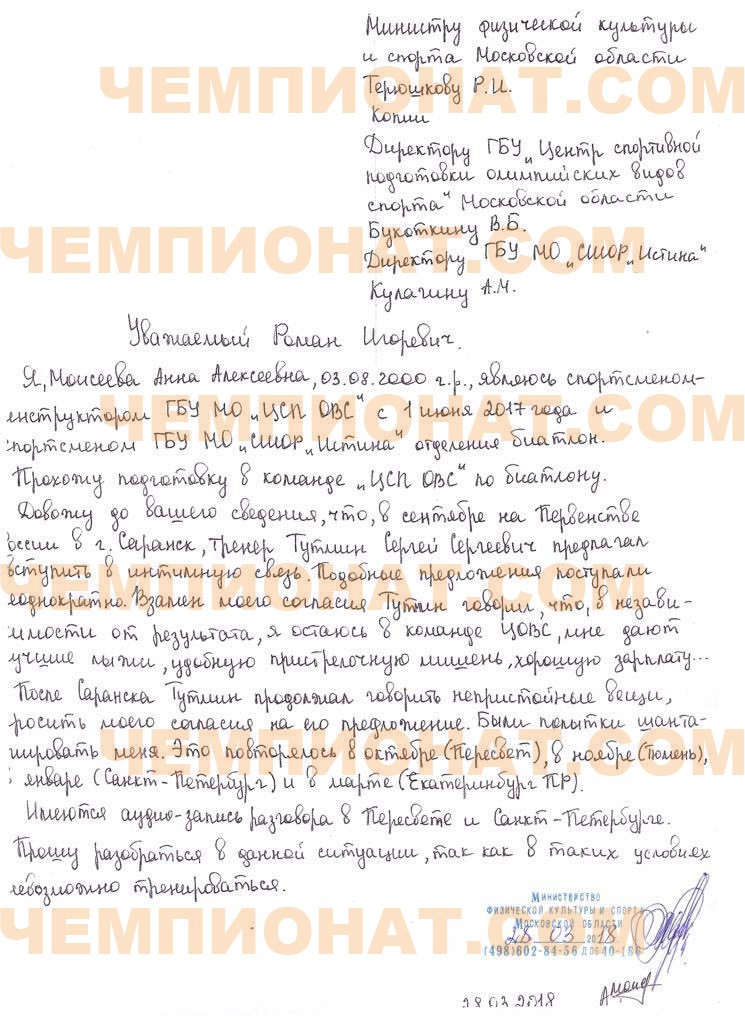 Министру физической культуры
и спорта Московской области
Терюшкову Р.И.
Копии
Директору ГБУ „Центр спортивной
подготовки олимпийских видов
спорта“ Московской области
Букоткину В.Б.
Директору ГБУ МО „СШОР „Истина“
Кулагину А.М.
Уважаемый Роман Игоревич.
Я, Моисеева Анна Алексеевна, 03.08.2000 г.р., являюсь спортсменом-
инструктором ГБУ МО „ЦСП ОВС“ с 1 июня 2017 года и
спортсменом ГБУ МО „СШОР „Истина“ отделения биатлон.
Прохожу подготовку в команде „ЦСП ОВС“ по биатлону.
Довожу до вашего сведения, что, в сентябре на Первенстве
оссии в г. Саранск, тренер Тутмин Сергей Сергеевич предлагал
вступить в интимную связь. Подобные предложения поступали
еоднократно. Взамен моего согласия Тутмин говорил, что, в незави-
имости от результата, я остаюсь в команде ЦОВС, мне дают
учшие лыжи, удобную пристрелочную мишень, хорошую зарплату...
После Саранска Тутмин продолжал говорить непристойные вещи,
росить моего согласия на его предложение. Были попытки шанта-
жировать меня. Это повторялось в октябре (Пересвет), в ноябре (Тюмень),
в январе (Санкт-Петербург) и в марте (Екатеринбург ПР).
Имеются аудио-запись разговора в Пересвете и Санкт-Петербурге.
Прошу разобраться в данной ситуации, так как в таких условиях
невозможно тренироваться.
Министерство
физической культуры и спорта
Московской области
28 03 2018.
(498)602-84-50 доб 40-186
28.03.2018
ЧЕМПИОНАТ.COM
ЧЕМПИОНАТ.COM
ЧЕМПИОНАТ.COM
ЧЕМПИОНАТ.COM
ЧЕМПИОНАТ.COM
ЧЕМПИОНАТ.COM